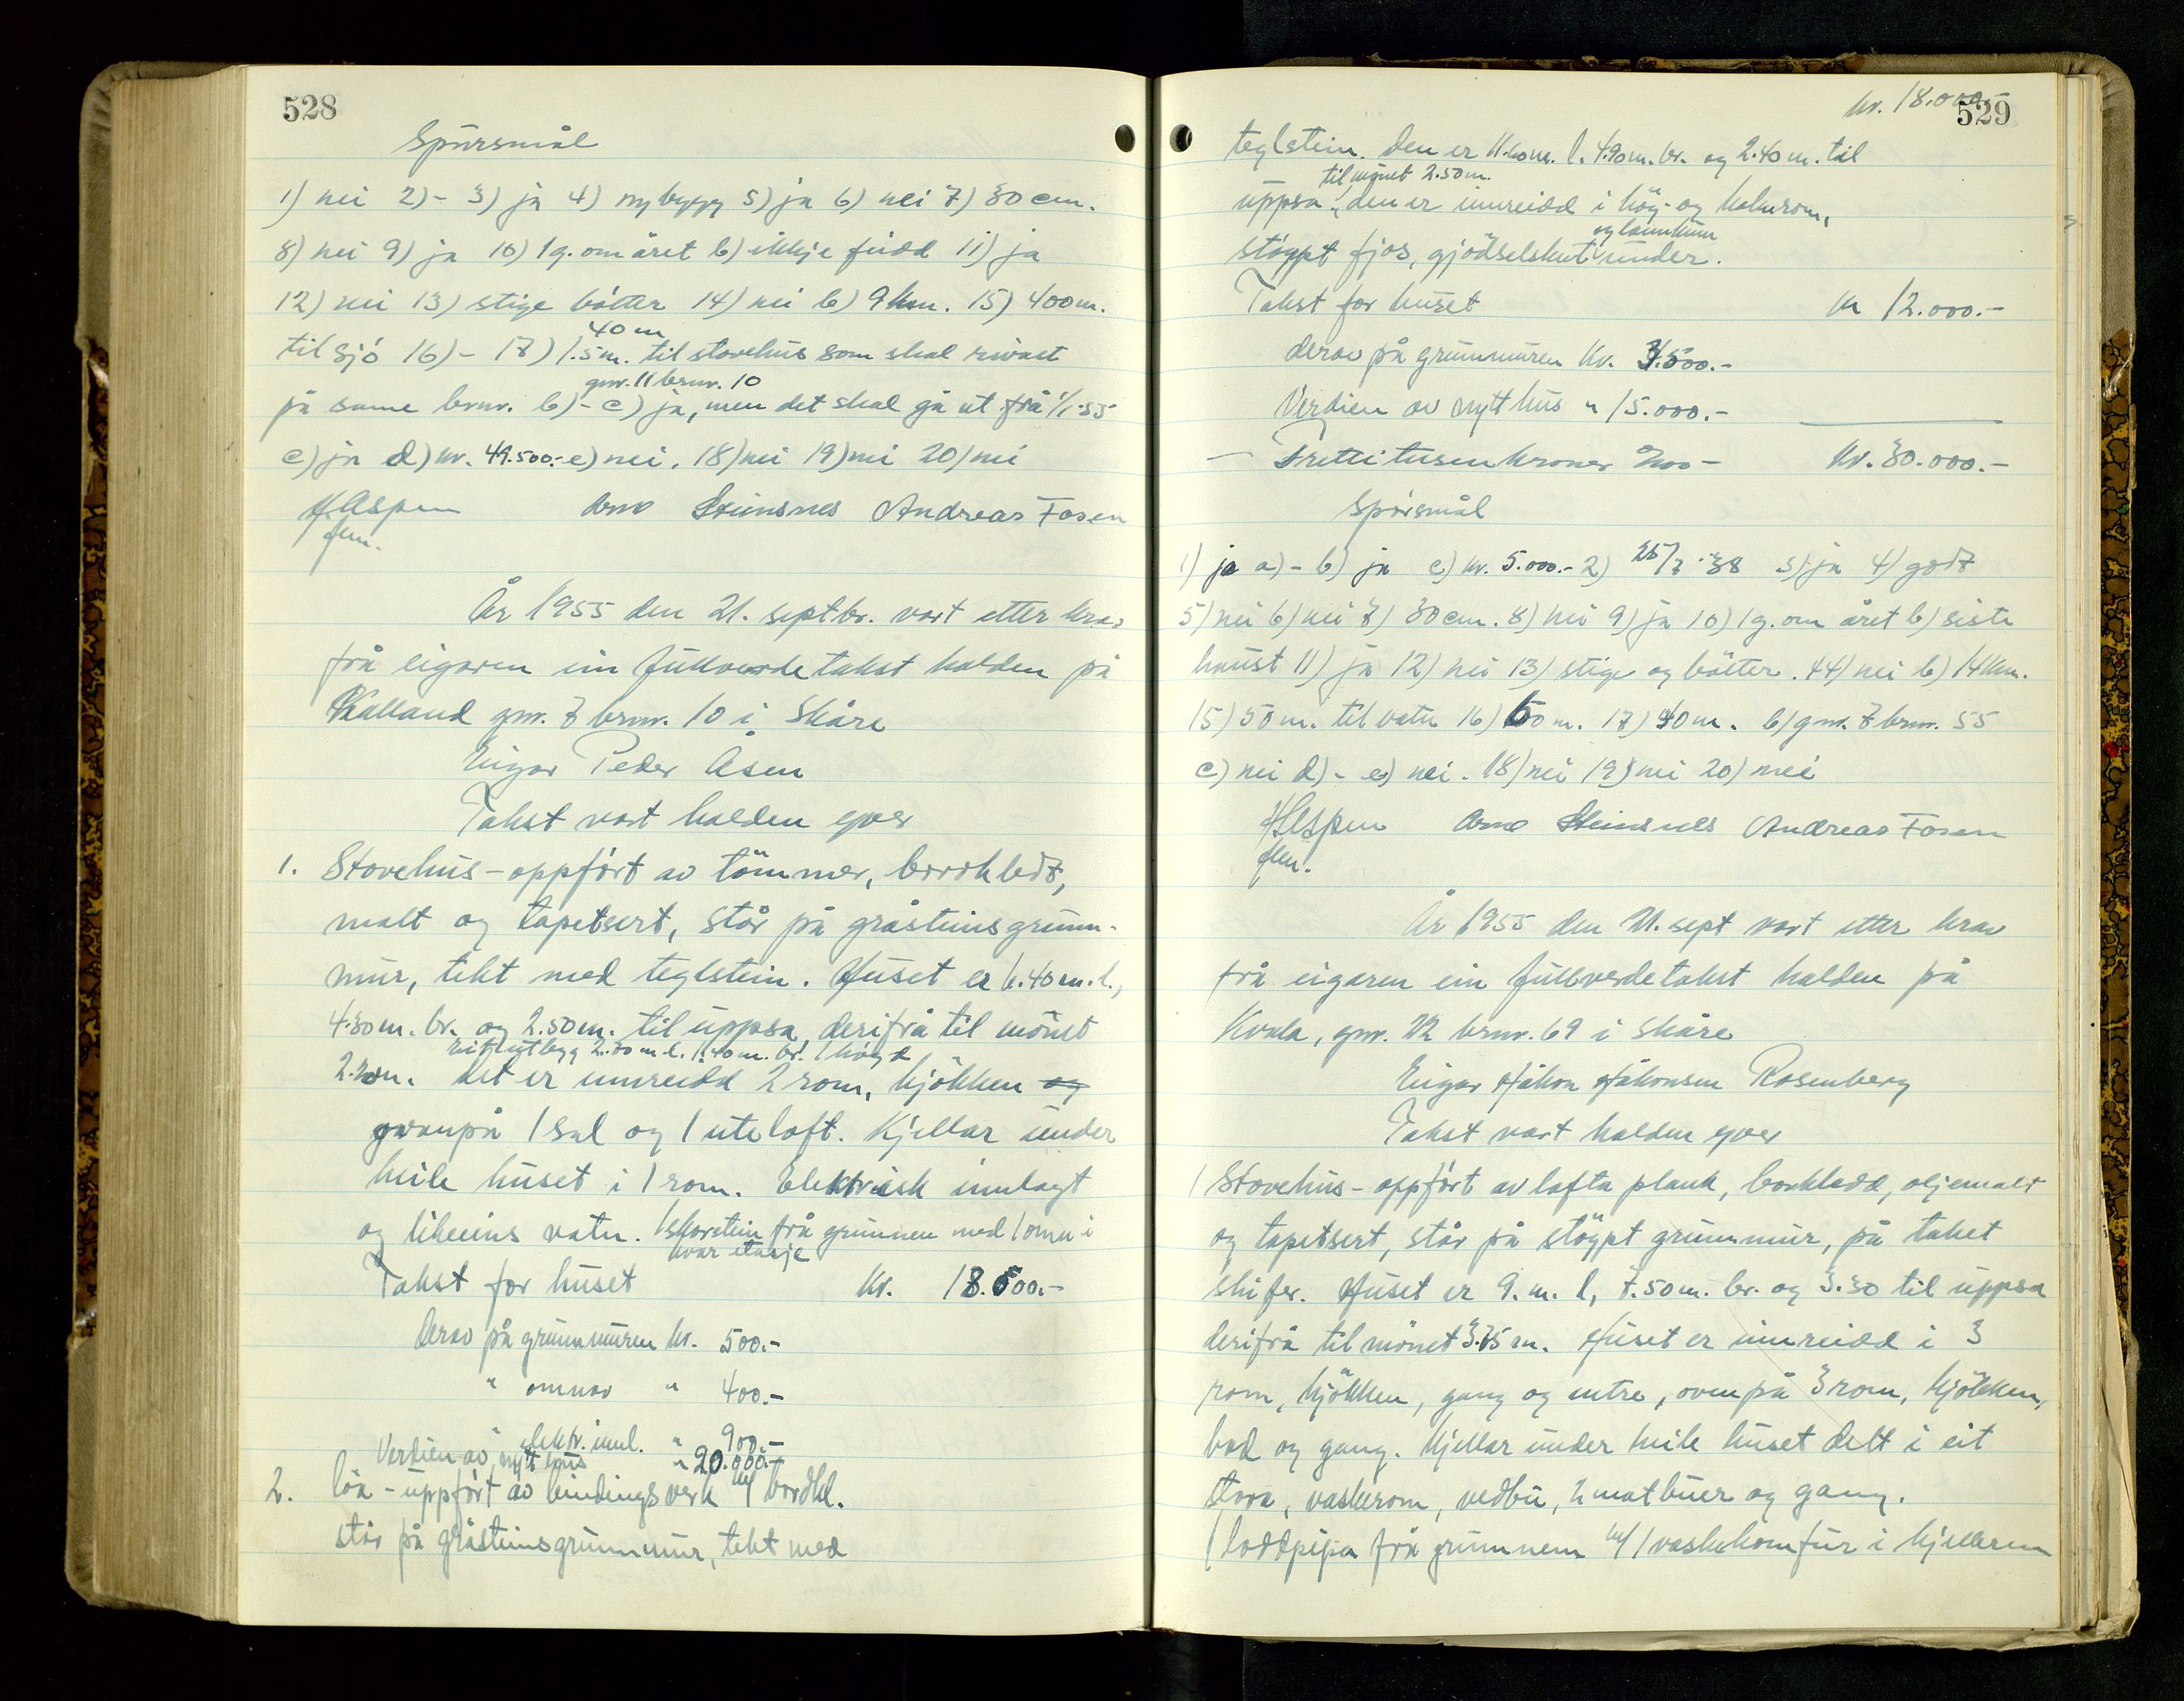 528
Spörsmål
1) nei 2) - 3) ja 4) nybygg 5) ja 6) nei 7) 30 cm.
8) nei 9) ja 10) 1 g. om året b) ikkje fudd 11) ja
12) nei 13) stige bötter 14) nei b) 9 km. 15) 400 m.
40 m
til sjö 16) - 17) 1.5 m. til stovehus som skal rivast
gnr. 11 brnr. 10
på same brnr. b) - c) ja, men det skal gå ut frå 1/1-55
c) ja d) kr. 49.500.- e) nei. 18) nei 19) nei 20) nei
H Aspen Arne Steinsnes Andreas Fosen
flm.
År 1955 den 21. septbr. vart etter krav
frå eigaren ein fullverdetakst halden på
Kalland gnr. 7 brnr. 10 i Skåre
Eigar Peder Åsen
Takst vart halden yver
1. Stovehus - oppfört av tömmer, bordkledt,
malt og tapetsert, står på gråsteinsgrunn-
mur, tekt med teglstein. Huset er 6.40 m. l.,
4.30 m. br. og 2.50 m. til uppsa, derifrå til mönet
Eit utbygg 2.30 m l. 1.40 m. br. 1 högd
2.20 m. det er innreidd 2 rom, kjökken og
ovanpå 1 sal og 1 uteloft. Kjellar under
heile huset i 1 rom. Elektrisk innlagt
og likeeins vatn. 1 skorstein frå grunnen med 1 omn i
kvar etasje
Takst for huset Kr. 18.000.-
Derav på grunnmuren kr. 500.-
" omnar " 400.-
" elektr. innl. " 900.-
Verdien av nytt hus " 20.000.-
2. löa - uppfört av bindingsverk m/ bordkl.
står på gråsteinsgrunnmur, tekt med
kr. 18.000.-
529
teglstein. Den er 11.60 m. l. 4.90 m. br. og 2.40 m. til
til mönet 2.50 m.
uppsa, den er innreidd i höy- og halmrom,
og landkum
stöypt fjos, gjödselskut under.
Takst for huset Kr 12.000.-
derav på grunnmuren Kr. 3.500.-
Verdien av nytt hus " 15.000.-
- Trettitusen kroner %00 - Kr. 30.000.-
Spörsmål
1) ja a) - b) ja c) kr. 5.000.- 2) 25/7-38 3) ja 4) godt
5) nei 6) nei 7) 30 cm. 8) nei 9) ja 10) 1 g. om året b) siste
haust 11) ja 12) nei 13) stige og bötter. 14) nei b) 14 km.
15) 50 m. til vatn 16) 60 m. 17) 40 m. b) gnr. 7 brnr. 55
c) nei d) - e) nei. 18) nei 19) nei 20) nei
H Aspen Arne Steinsnes Andreas Fosen
flm.
År 1955 den 21. sept vart etter krav
frå eigaren ein fullverdetakst halden på
Kvala, gnr. 22 brnr. 69 i Skåre
Eigar Håkon Håkonsen Rosenberg
Takst vart halden yver
1 Stovehus - oppfört av lafta plank, bordkledd, oljemalt
og tapetsert, står på stöypt grunnmur, på taket
skifer. Huset er 9. m. l, 7.50 m. br. og 3.30 til uppsa
derifrå til mönet 3.75 m. Huset er innreidd i 3
rom, kjökken, gang og entre, ovenpå 3 rom, kjökken,
bad og gang. Kjellar under heile huset delt i eit
stova, vaskerom, vedbu, 2 matbuer og gang.
1 loddpipa frå grunnen m/ 1 vaskekomfur i kjelleren